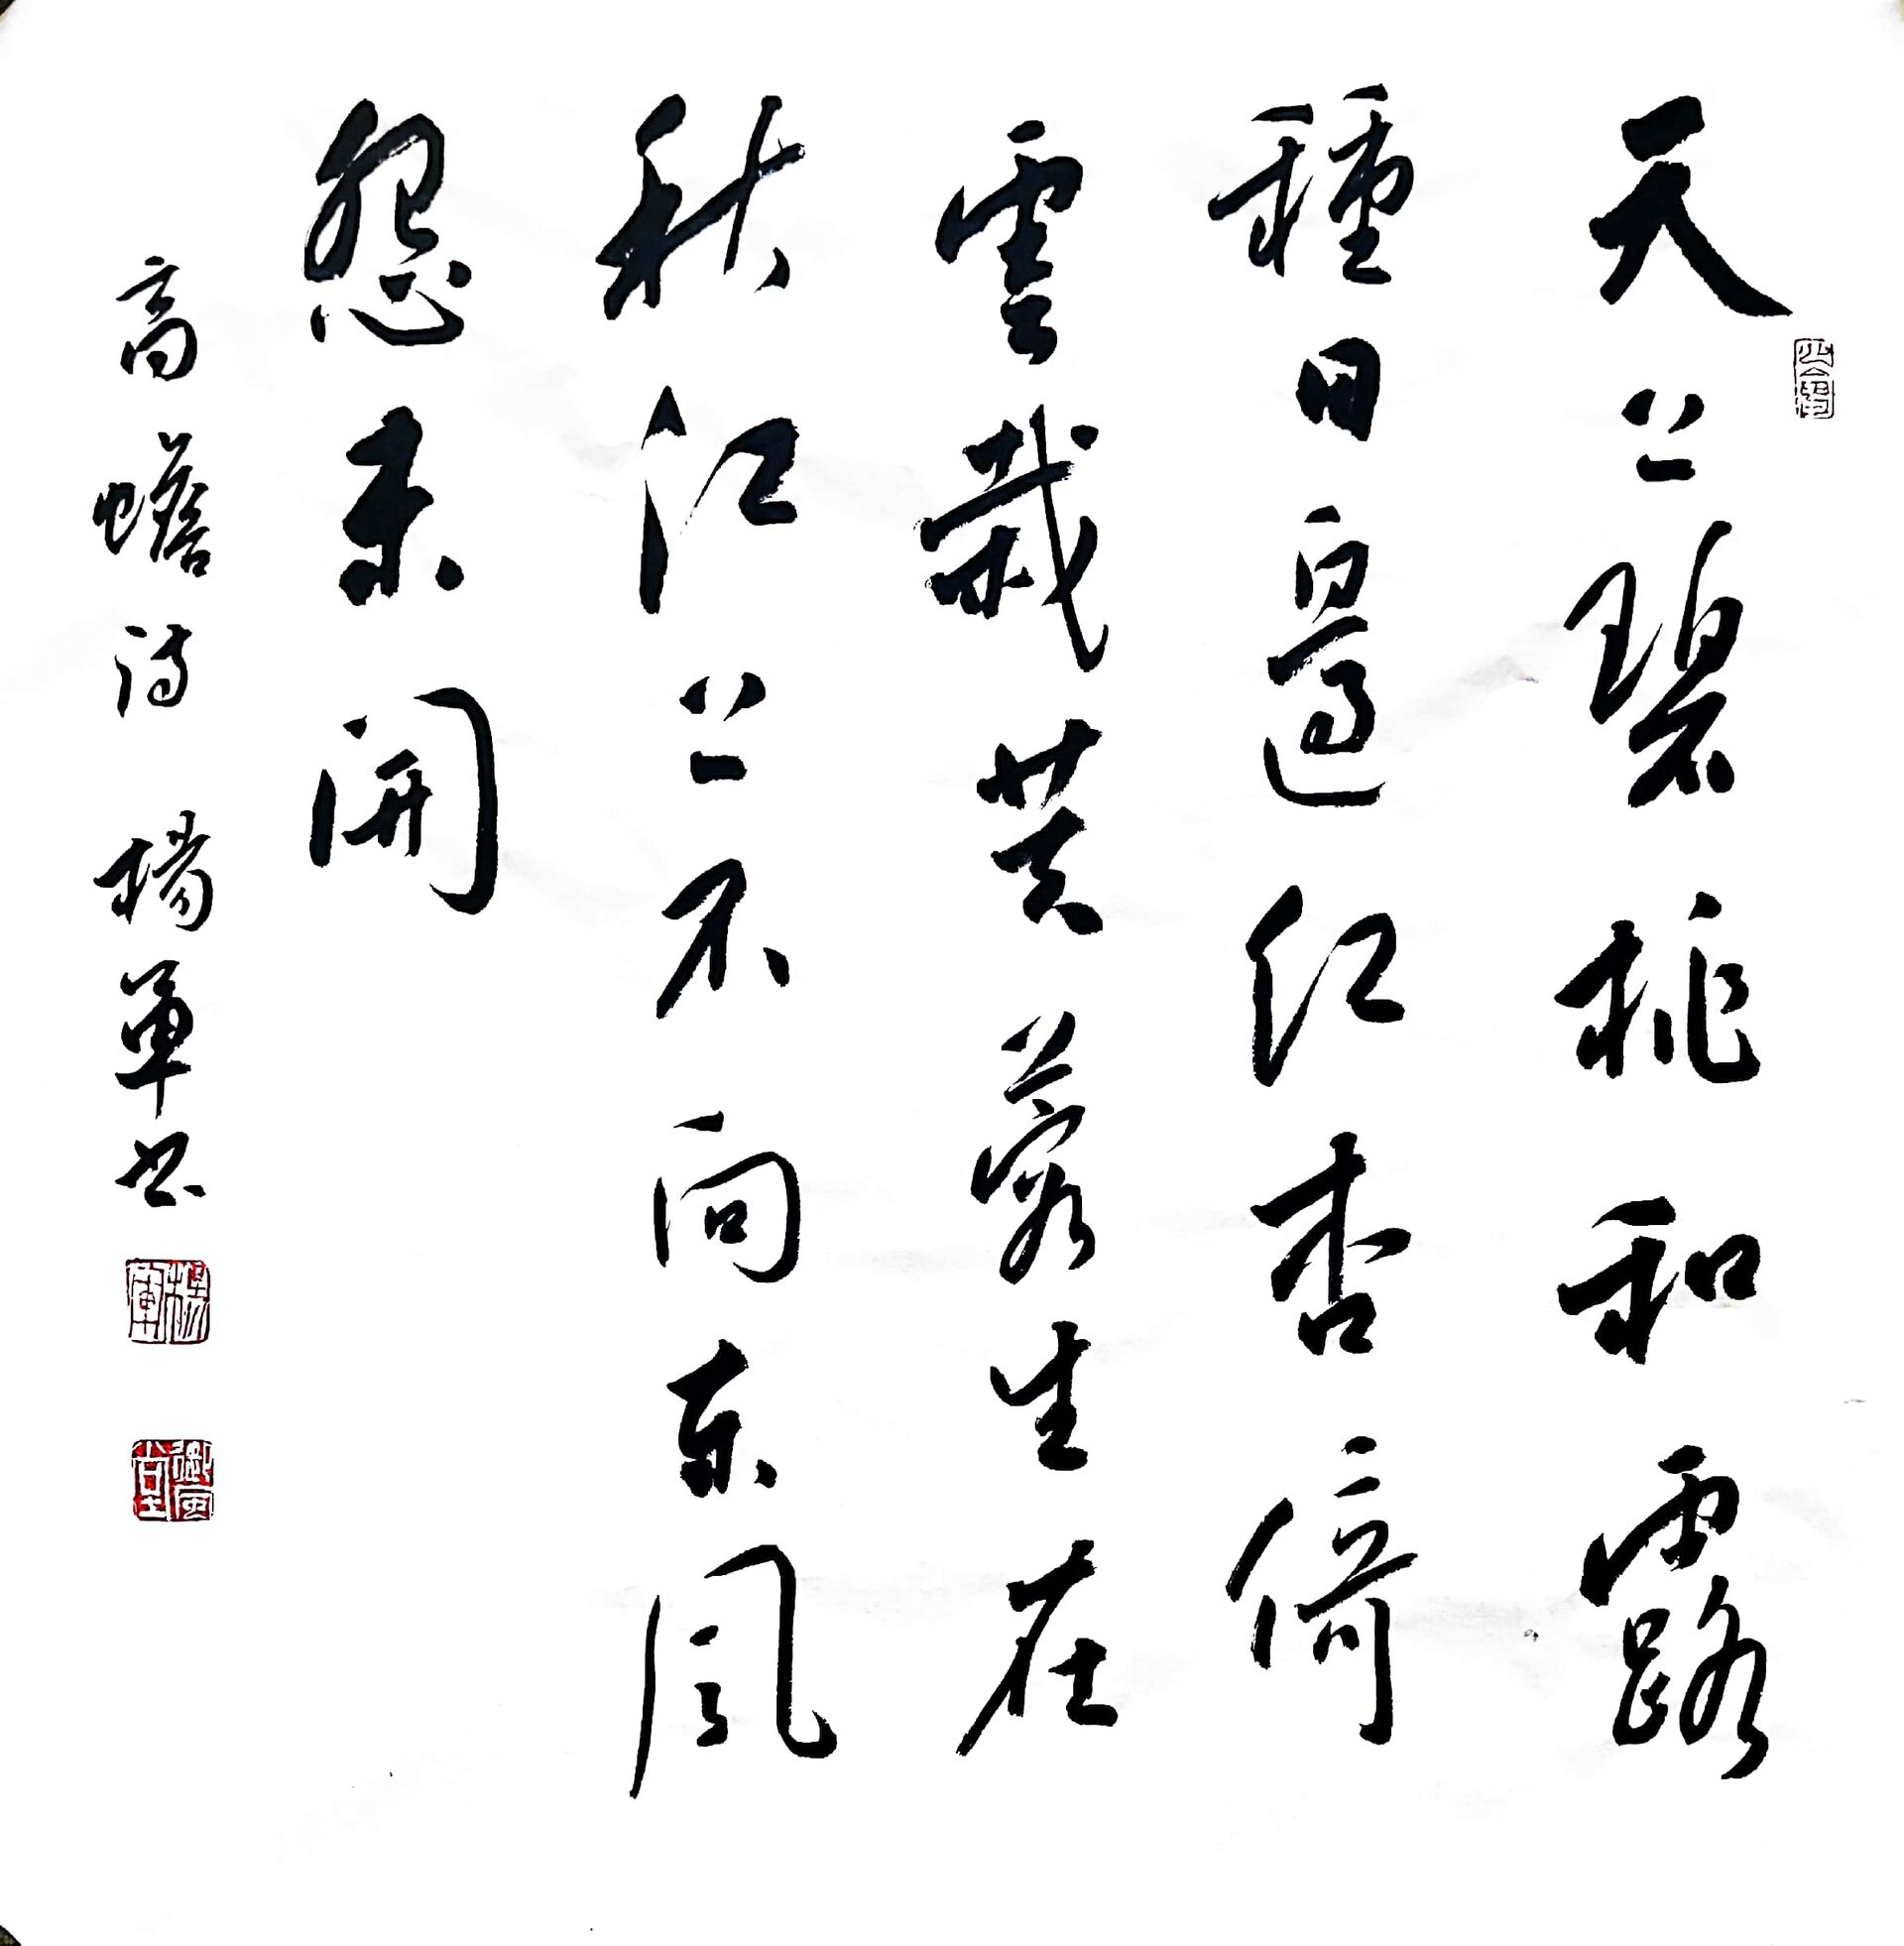 天上碧桃和露
種日邊紅杏倚
雲栽芙蓉生在
秋江上不向東風
怨未開
高蟾詩 楊軍書
楊軍